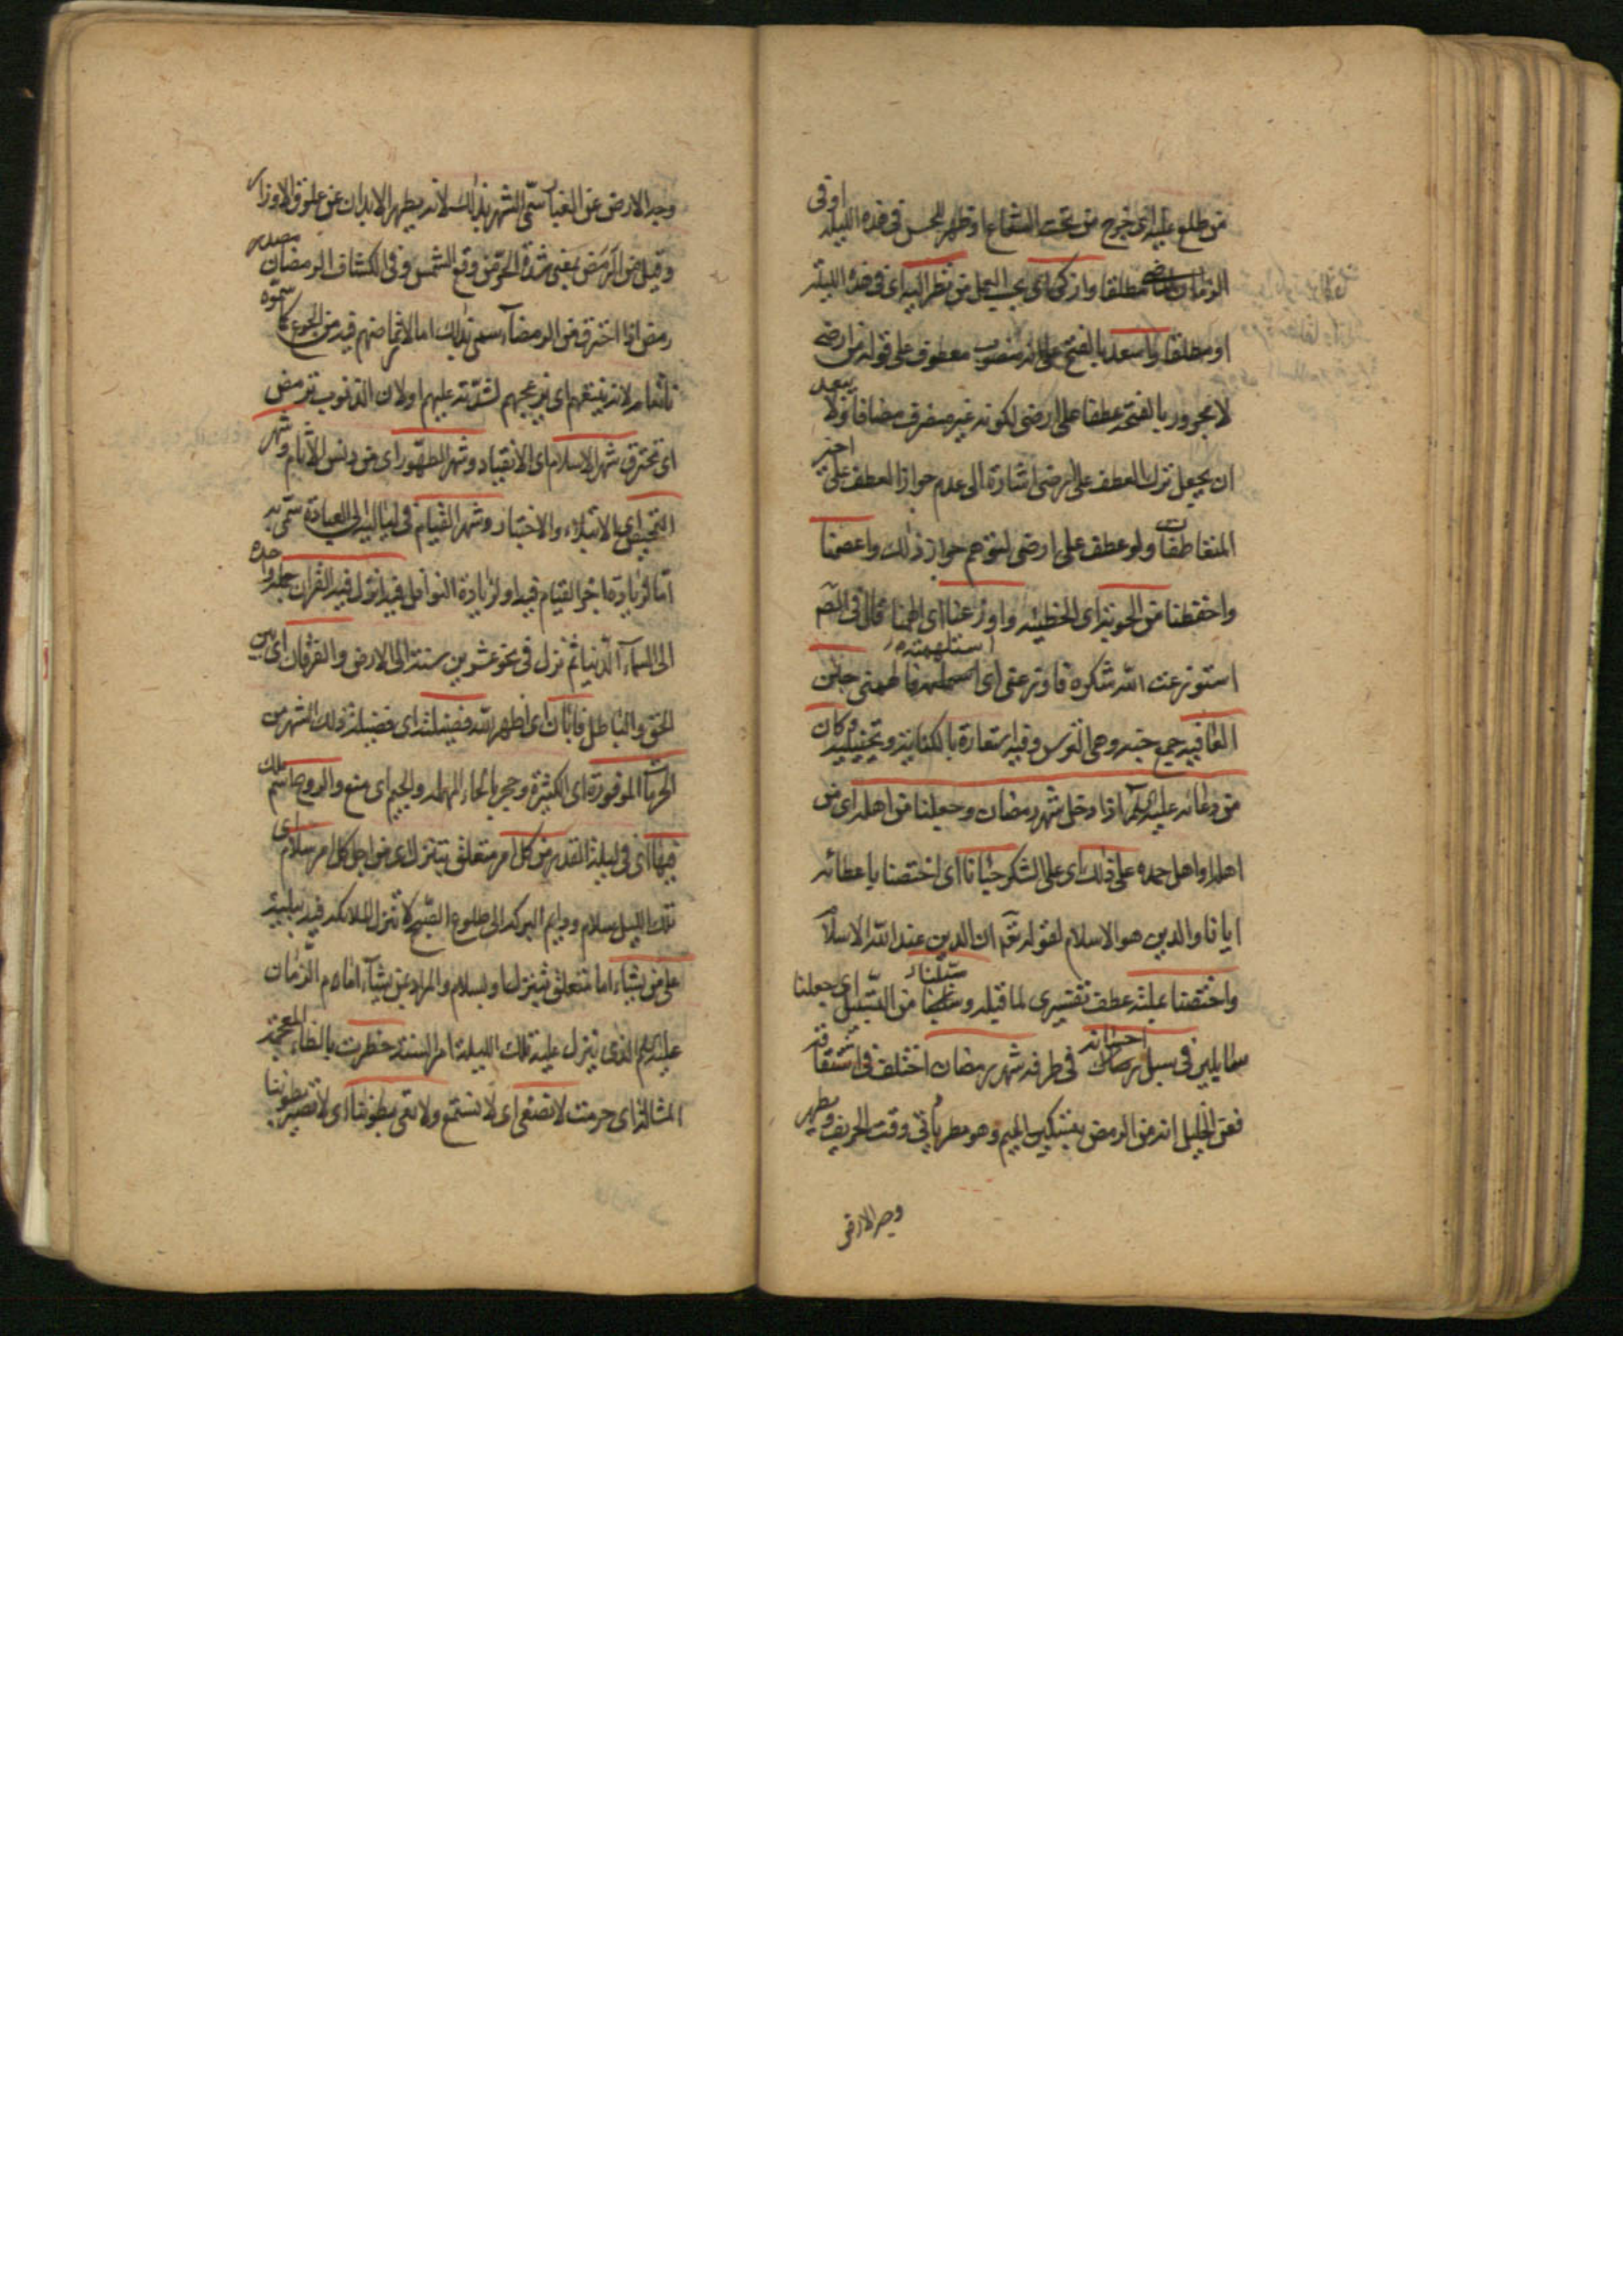 من طلع عليه اى خرج من تحت الشعاع او ظهر للحس فى هذه الليلة او فى
الزمان الماضى مطلقا وازكى اى بحسب العمل من نظر اليه اى فى هذه الليلة
او مطلقا واسعد بالفتح على انه منصوب معطوف على قوله من ارضى
لا مجرور بالفتحة عطفا على ارضى لكونه غير منصرف مضافا ولا يبعد
ان يجعل ترك العطف على ارضى اشارة الى عدم جواز العطف على اخير
المتعاطفات ولو عطف على ارضى لتوهم جواز ذلك واعصمنا
واحفظنا من الحوبة اى الخطيئة واوزعنا اى الهمنا قال فى الصّ
استوزعت الله شكره فاوزعنى اى استلهمته فالهمنى جنن
العافية جمع جنة وهى الترس وفيه استعارة بالكناية وتخييلية وكان
من دعائه عليه السلم اذا دخل شهر رمضان وجعلنا من اهله اى من
اهله او اهل حمده على ذلك اى على الشكر حبانا اى اختصنا باعطائه
ايانا والدين هو الاسلام لقوله تعم ان الدين عند الله الاسلام
واختصنا عليته عطف تفسيرى لما قبله وسبّلنا من التسبيل اى جعلنا
سابلين فى سبل احسانه فى طرقه شهر رمضان اختلف فى اشتقاقه
فعن الخليل انه من الرمض بتسكين الميم وهو مطر يأتى وقت الخريف يطهر
وجه الارض
وجه الارض عن الغبار سمّى الشهر بذلك لانه يطهر الابدان عن الاوزار
وقيل من الرمض بمعنى شدة الحرّ من وقع الشمس وفى الكشاف الرمضان مصدر
رمض اذا احترق من الرمضآء سمى بذلك اما لارتماضهم فيه من الجوع كما سمّوه
ناتقا لانه ينتقهم اى يزعجهم لشدّته عليهم او لان الذنوب ترمض
اى تحترق شهر الاسلام اى الانقياد وشهر الطهور اى من دنس الآثام وشهر
التمحيص اى الابتلاء والاختبار وشهر القيام فى لياليه الى العبادة سمّى به
امّا لزيادة اجر القيام فيه او لزيادة النوافل فيه انزل فيه القران جملة واحدة
الى السمآء الدنيا ثم نزل فى نحو عشرين سنة الى الارض والفرقان اى بين
الحق والباطل فابان اى اظهر الله فضيلته اى فضيلة ذلك الشهر من
الحرمات الموفورة اى الكثيرة وحجر بالحاء المهملة والجيم اى منع والروح اسم ملك
فيها اى فى ليلة القدر من كل امر متعلق بتنزل اى من اجل كل امر سلام اى
تلك الليل سلام ودايم البركة الى طلوع الصبح لا تنزل الملائكة فيه ببلية
على من يشاء اما متعلق بتنزل او بسلام والمراد عن يشآء امام الزمان
عليه السلم الذى تنزل عليه تلك الليلة امر السنة حظرت بالظاء المعجمة
المشالة اى حرمت لا نصغى اى لا نستمع ولا تعى بطوننا اى لا تصير بطوننا